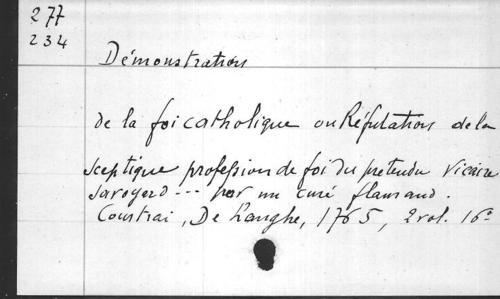 277
234
Démonstration
de la foi catholique ou Réfutation de la
sceptique profession de foi du pretendu Vicaire
savoyard --- par un curé flamand.
Courtrai, De Langhe, 1765, 2 vol. 16º